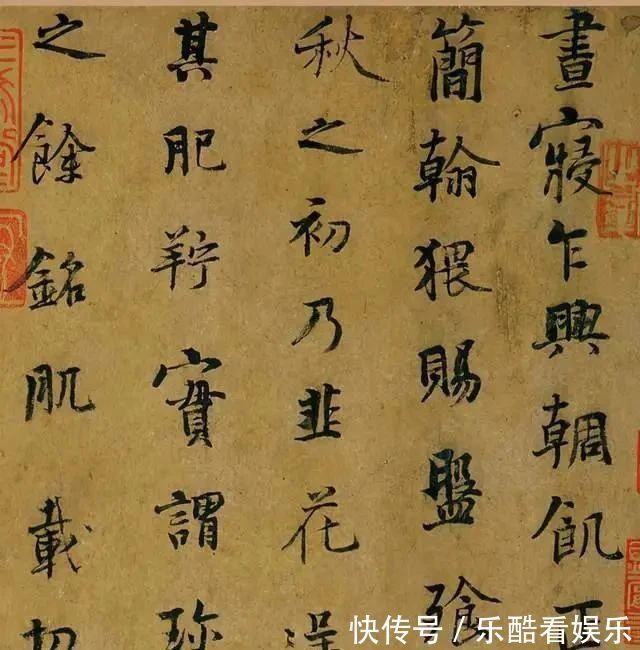 晝寢乍興輖飢正
簡翰猥賜盤飧
秋之初乃韭花逞
其肥羜實謂珍
之餘銘肌載切
快传号 / 乐酷看娱乐